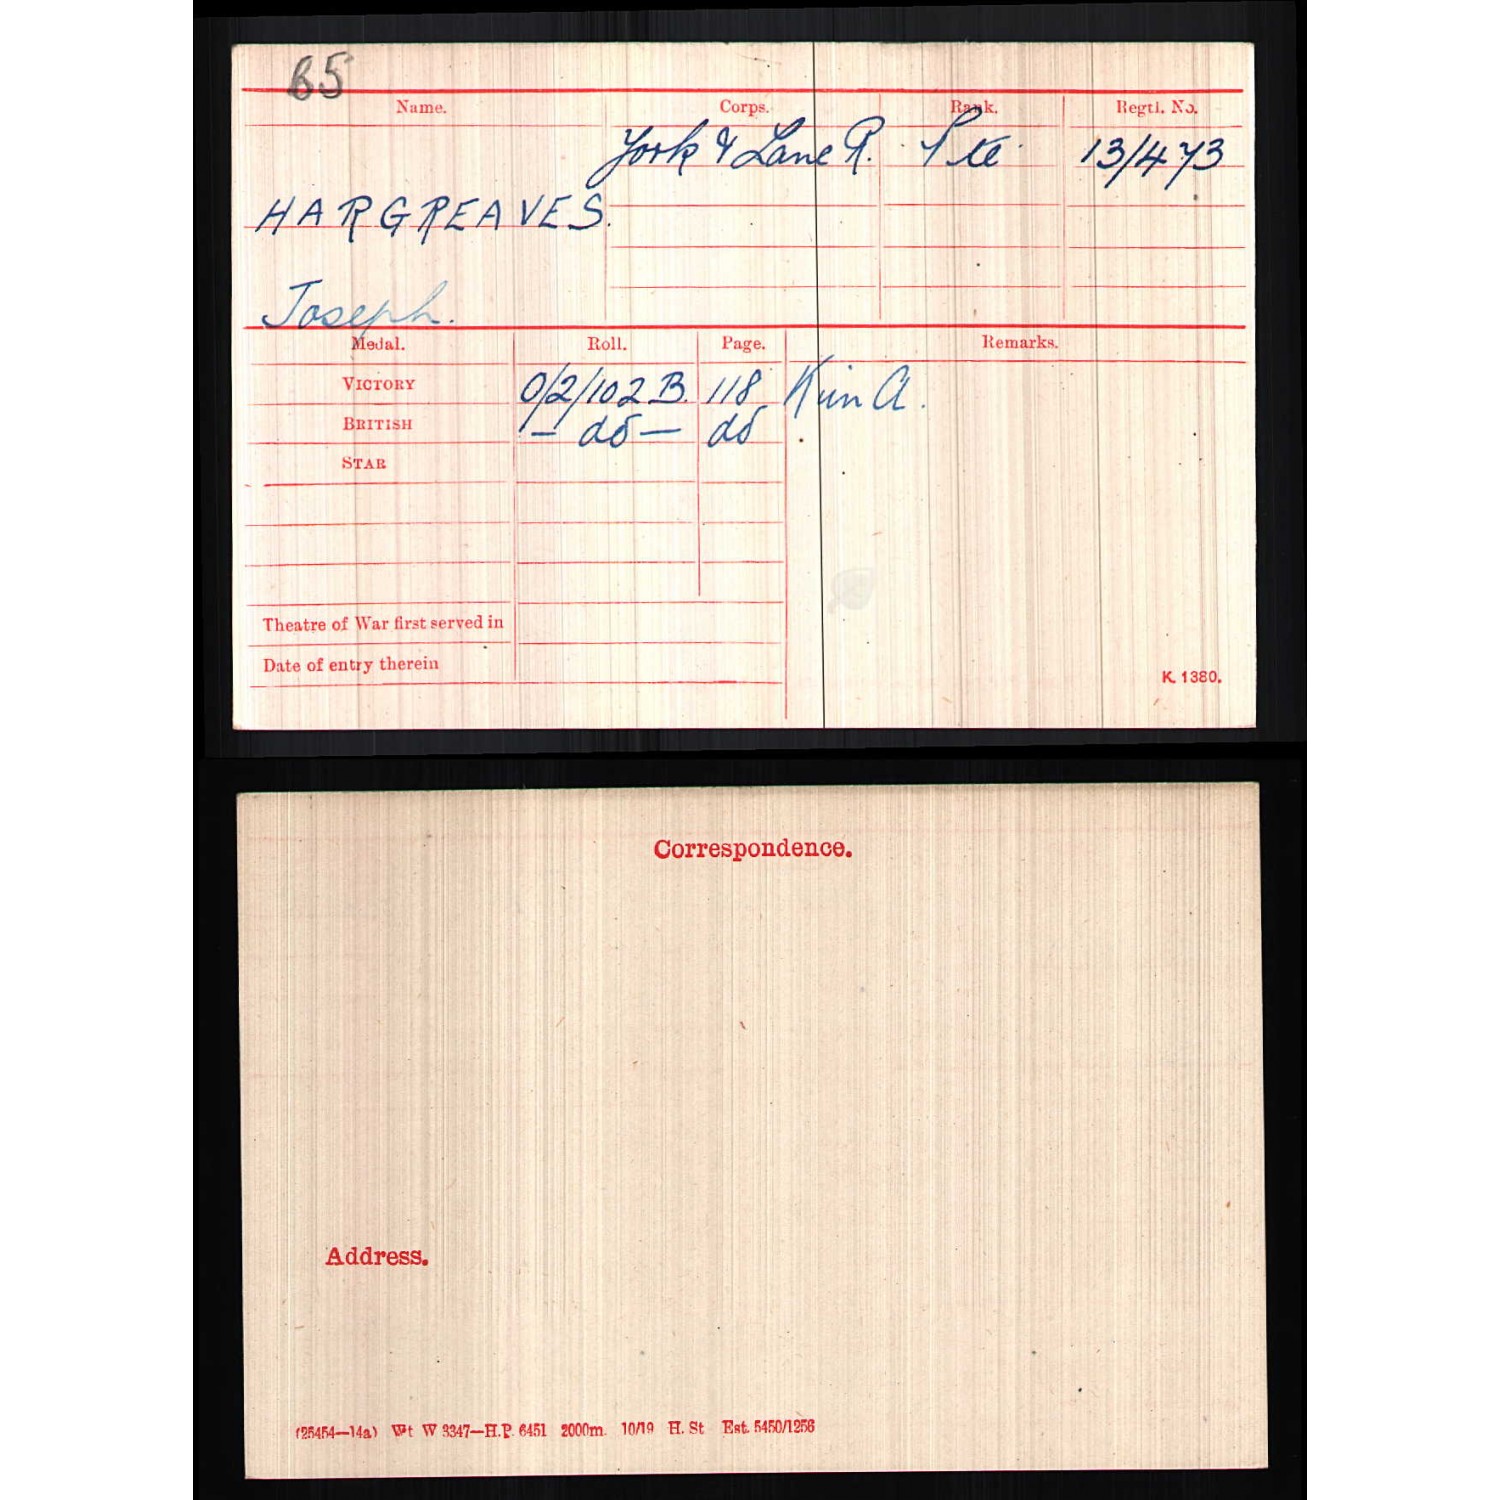 65
Name. Corps. Rank. Regtl. No.
York & Lanc R. Pte 13/473
HARGREAVES.
Joseph.
Medal. Roll. Page. Remarks.
VICTORY 0/2/102 B. 118 K in A.
BRITISH — do — do
STAR
Theatre of War first served in
Date of entry therein
K. 1380.
Correspondence.
Address.
(25454—14a) Wt W 3347—H.P. 6451 2000m. 10/19 H. St Est. 5450/1256